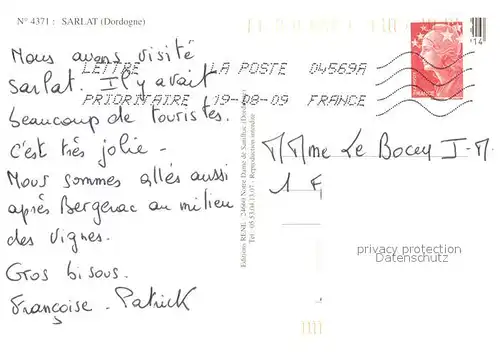 N° 4371 : SARLAT (Dordogne)
Nous avons visité
Sarlat. Il y avait
beaucoup de touristes.
C'est très jolie -
Nous sommes allés aussi
après Bergerac au milieu
des vignes.
Gros bisous.
Françoise - Patrick
LETTRE LA POSTE 04569A
PRIORITAIRE 19-08-09 FRANCE
Editions RENÉ - 24660 Notre Dame de Sanilhac (Dordogne)
Tél : 05.53.04.13.07 - Reproduction interdite
14
FRANCE
M/Mme Le Bocey J-M.
1
privacy protection
Datenschutz